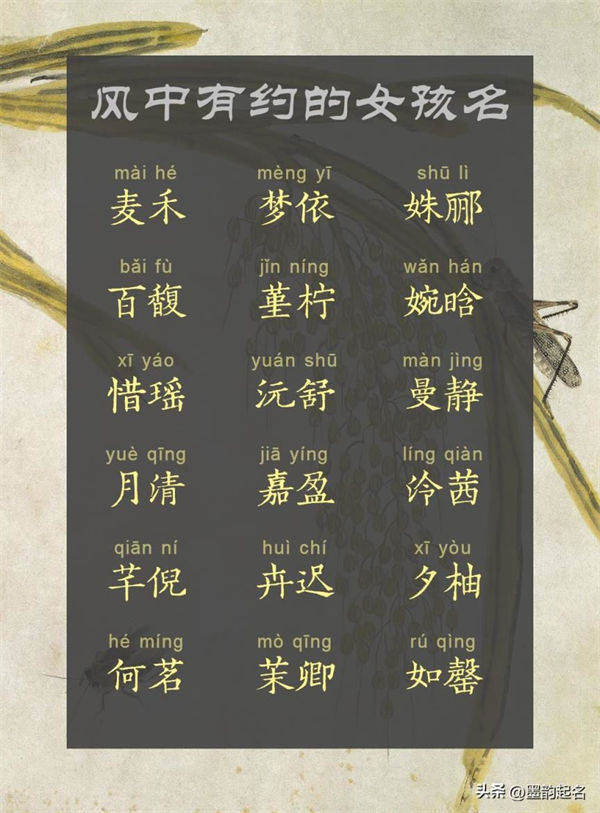 风中有约的女孩名
mài hé mèng yī shū lì
麦禾 梦依 姝郦
bǎi fù jǐn níng wǎn hán
百馥 堇柠 婉晗
xī yáo yuán shū màn jìng
惜瑶 沅舒 曼静
yuè qīng jiā yíng líng qiàn
月清 嘉盈 泠茜
qiān ní huì chí xī yòu
芊倪 卉迟 夕柚
hé míng mò qīng rú qìng
何茗 茉卿 如罄
头条 @墨韵起名